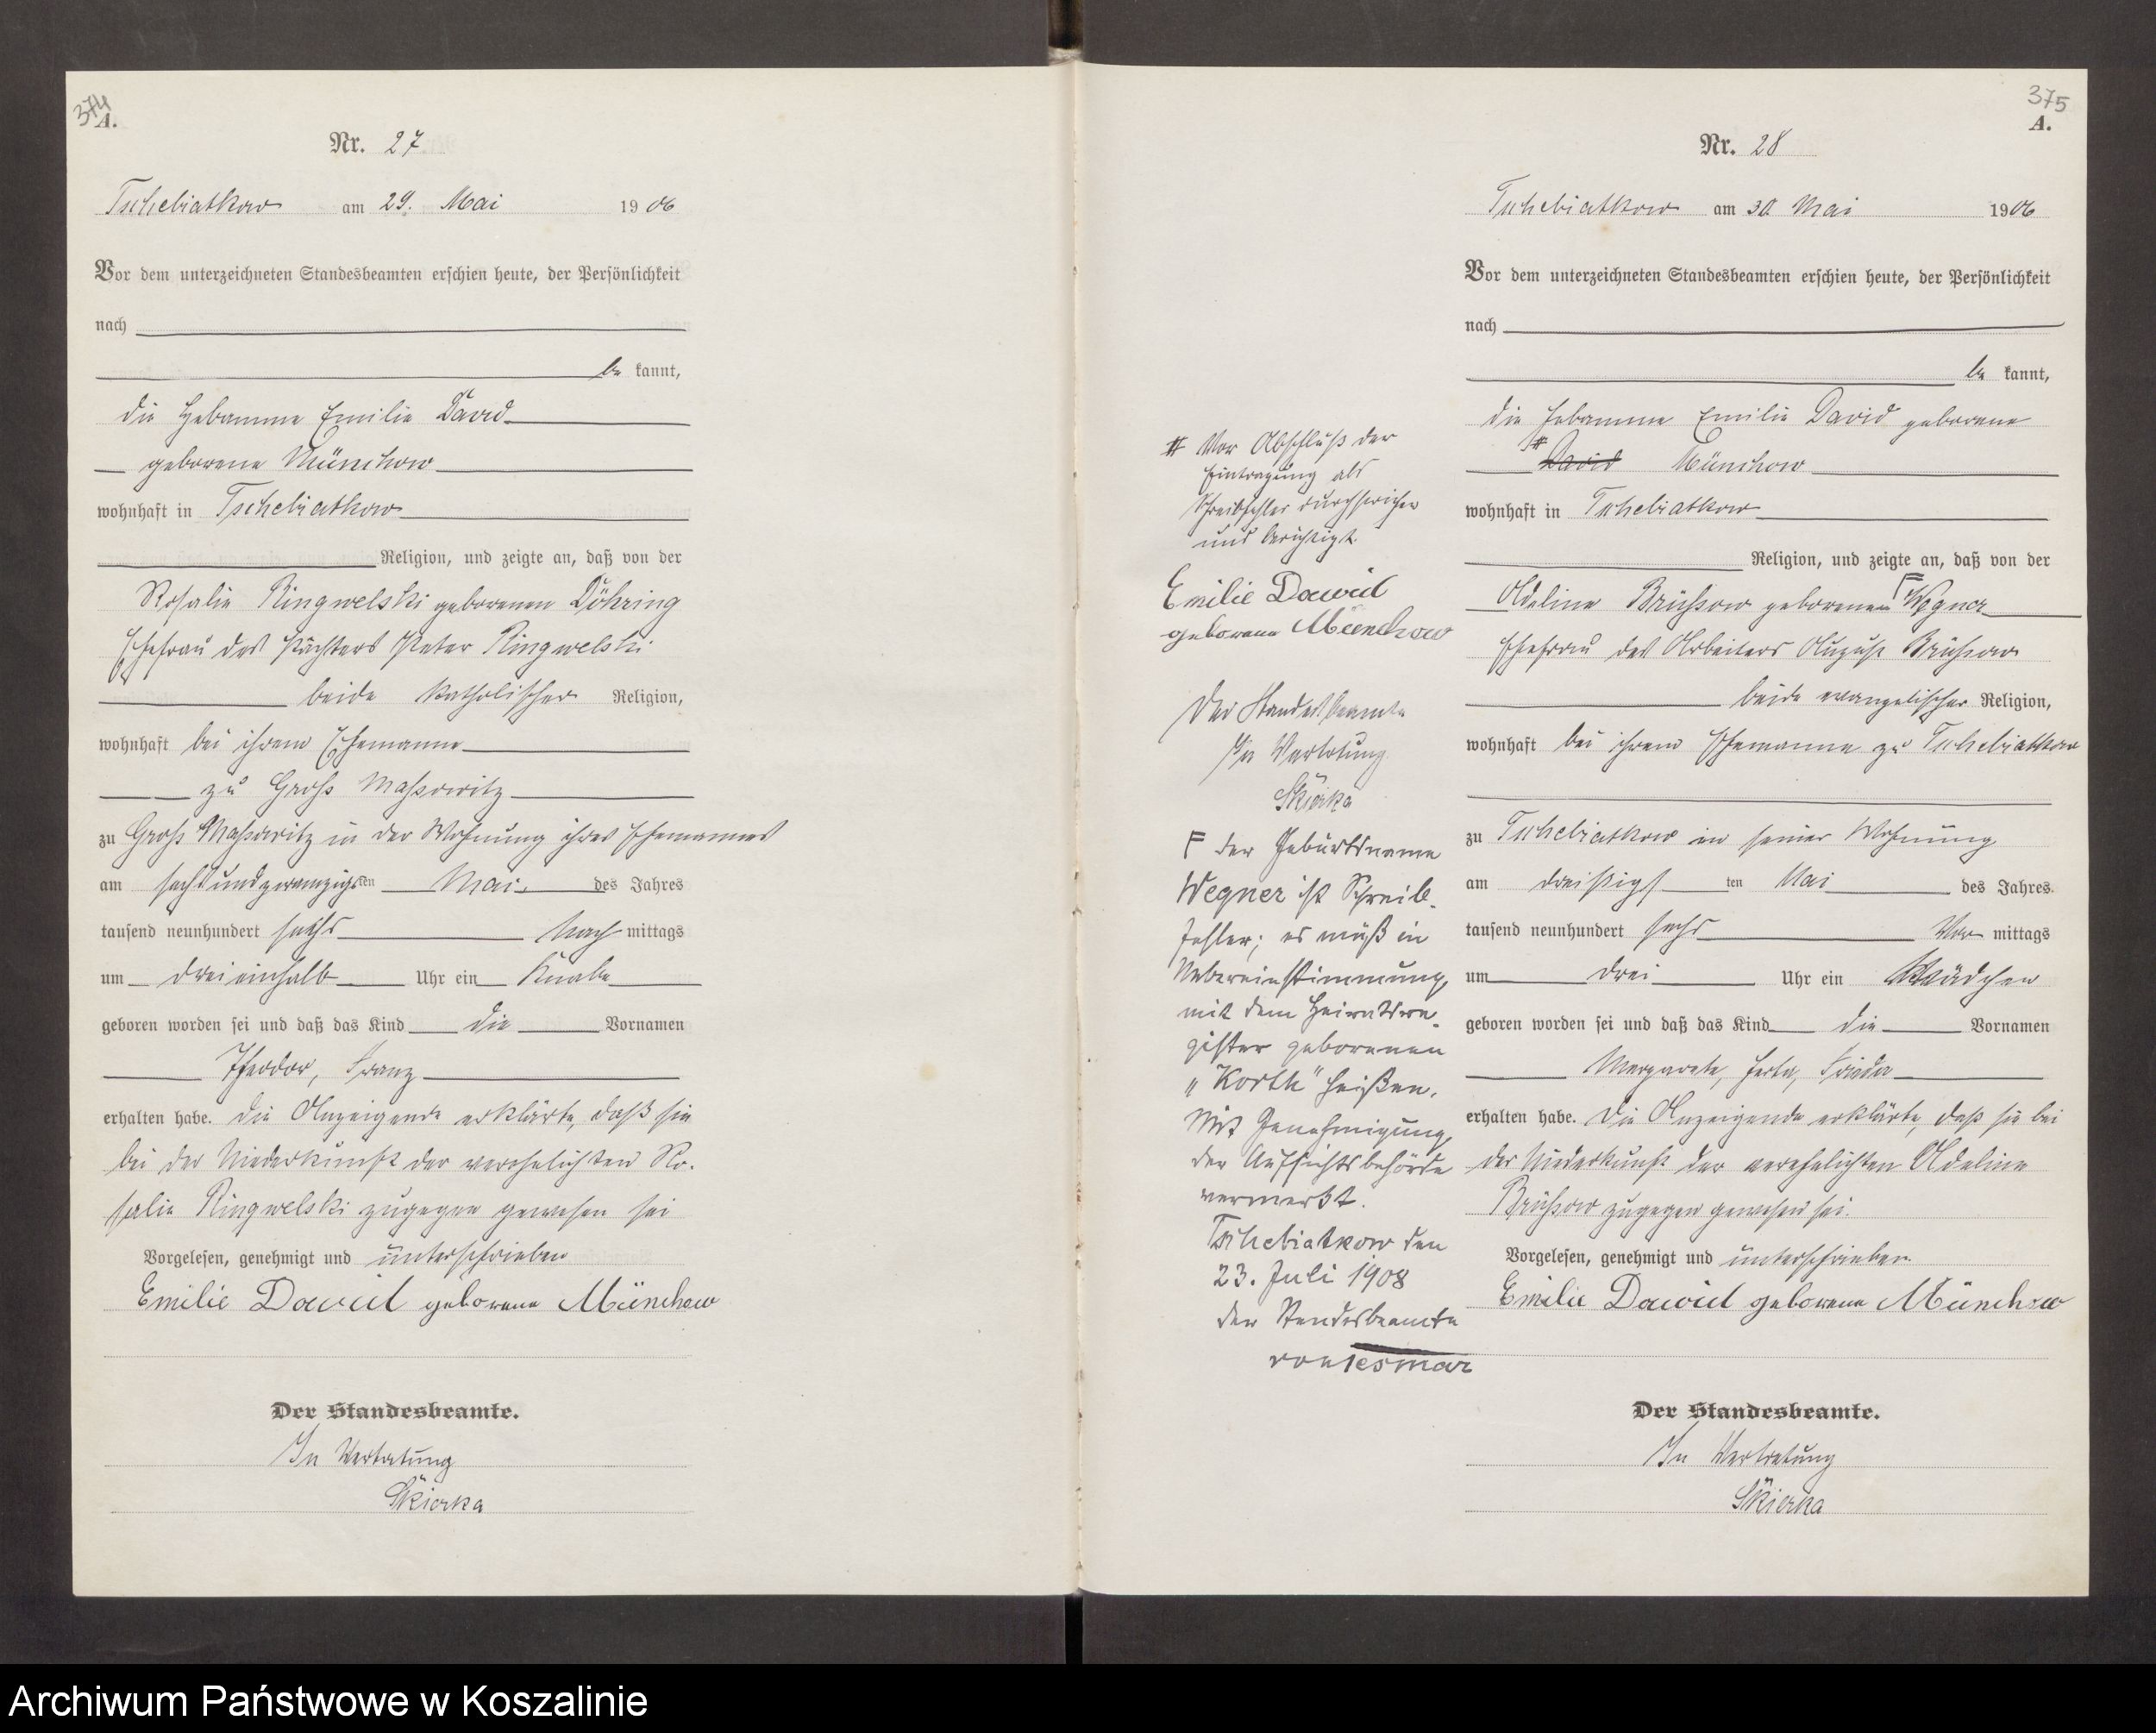 374
A.
Nr. 27
Tschebiatkow am 29. Mai 1906
Vor dem unterzeichneten Standesbeamten erschien heute, der Persönlichkeit
nach
be kannt,
die Hebamme Emilie David
geborene Münchow
wohnhaft in Tschebiatkow
Religion, und zeigte an, daß von der
Rosalie Ringwelski geborenen Döhring
Ehefrau des Pächters Peter Ringwelski
beide katholischer Religion,
wohnhaft bei ihrem Ehemanne
zu Groß Massowitz
zu Groß Massowitz in der Wohnung ihres Ehemannes
am sechsundzwanzigsten Mai des Jahres
tausend neunhundert sechs Nach mittags
um dreieinhalb Uhr ein Knabe
geboren worden sei und daß das Kind die Vornamen
Theodor, Franz
erhalten habe. Die Anzeigende erklärte, daß sie
bei der Niederkunft der verehelichten Ro-
salie Ringwelski zugegen gewesen sei
Vorgelesen, genehmigt und unterschrieben
Emilie David geborene Münchow
Der Standesbeamte.
In Vertretung
Skierka
375
A.
Nr. 28
Tschebiatkow am 30 Mai 1906
Vor dem unterzeichneten Standesbeamten erschien heute, der Persönlichkeit
nach
be kannt,
die Hebamme Emilie David geborene
# David Münchow
wohnhaft in Tschebiatkow
Religion, und zeigte an, daß von der
Adeline Brüssow geborenen Γ Wegner
Ehefrau des Arbeiters August Brüssow
beide evangelischer Religion,
wohnhaft bei ihrem Ehemanne zu Tschebiatkow
zu Tschebiatkow in seiner Wohnung
am dreißigsten Mai des Jahres
tausend neunhundert sechs Vor mittags
um drei Uhr ein Mädchen
geboren worden sei und daß das Kind die Vornamen
Margarete, Herta, Frieda
erhalten habe. Die Anzeigende erklärte, daß sie bei
der Niederkunft der verehelichten Adeline
Brüssow zugegen gewesen sei.
Vorgelesen, genehmigt und unterschrieben
Emilie David geborene Münchow
Der Standesbeamte.
In Vertretung
Skierka
# Vor Abschluß der
Eintragung als
Schreibfehler durchstrichen
und berichtigt
Emilie David
geborene Münchow
Der Standesbeamte
In Vertretung
Skierka
F der Geburtsname
Wegner ist Schreib-
fehler; es muß in
Uebereinstimmung
mit dem Heiratsre-
gister geborenen
„Korth" heißen.
Mit Genehmigung
der Aufsichtsbehörde
vermerkt.
Tschebiatkow den
23. Juli 1908
Der Standesbeamte
Archiwum Państwowe w Koszalinie